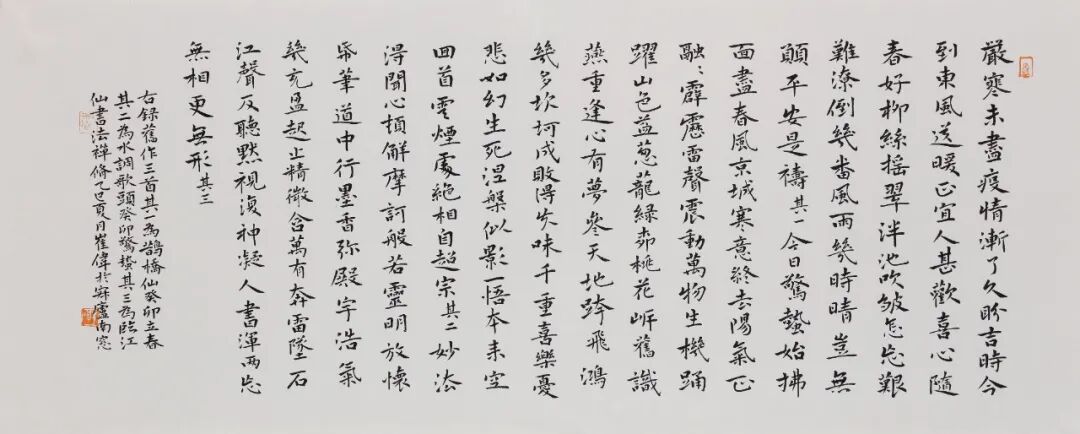 嚴寒未盡疫情漸了久盼吉時今
到東風送暖正宜人甚歡喜心隨
春好柳絲搖翠泮池吹皺怎忘艱
難潦倒幾番風雨幾時晴豈無
顛平安是禱其一今日驚蟄始拂
面盡春風京城寒意終去陽氣正
融〻霹靂雷聲震動萬物生機踊
躍山色益蔥蘢綠桃花岸舊識
燕重逢心有夢參天地跨飛鴻
幾多坎坷成敗得失味千重喜樂憂
悲如幻生死涅槃似影一悟本來空
回首雲煙處絕相自超宗其二妙法
得聞心頓解摩訶般若靈明放懷
帋筆道中行墨香弥殿宇浩氣
幾充盈起止精微含萬有奔雷墜石
江聲反聽默視復神凝人書渾兩忘
無相更無形其三
右録舊作三首其一為鵲橋仙癸卯立春
其二為水調歌頭癸卯驚蟄其三為臨江
仙書法禪修乙巳夏月崔偉於廬南窓